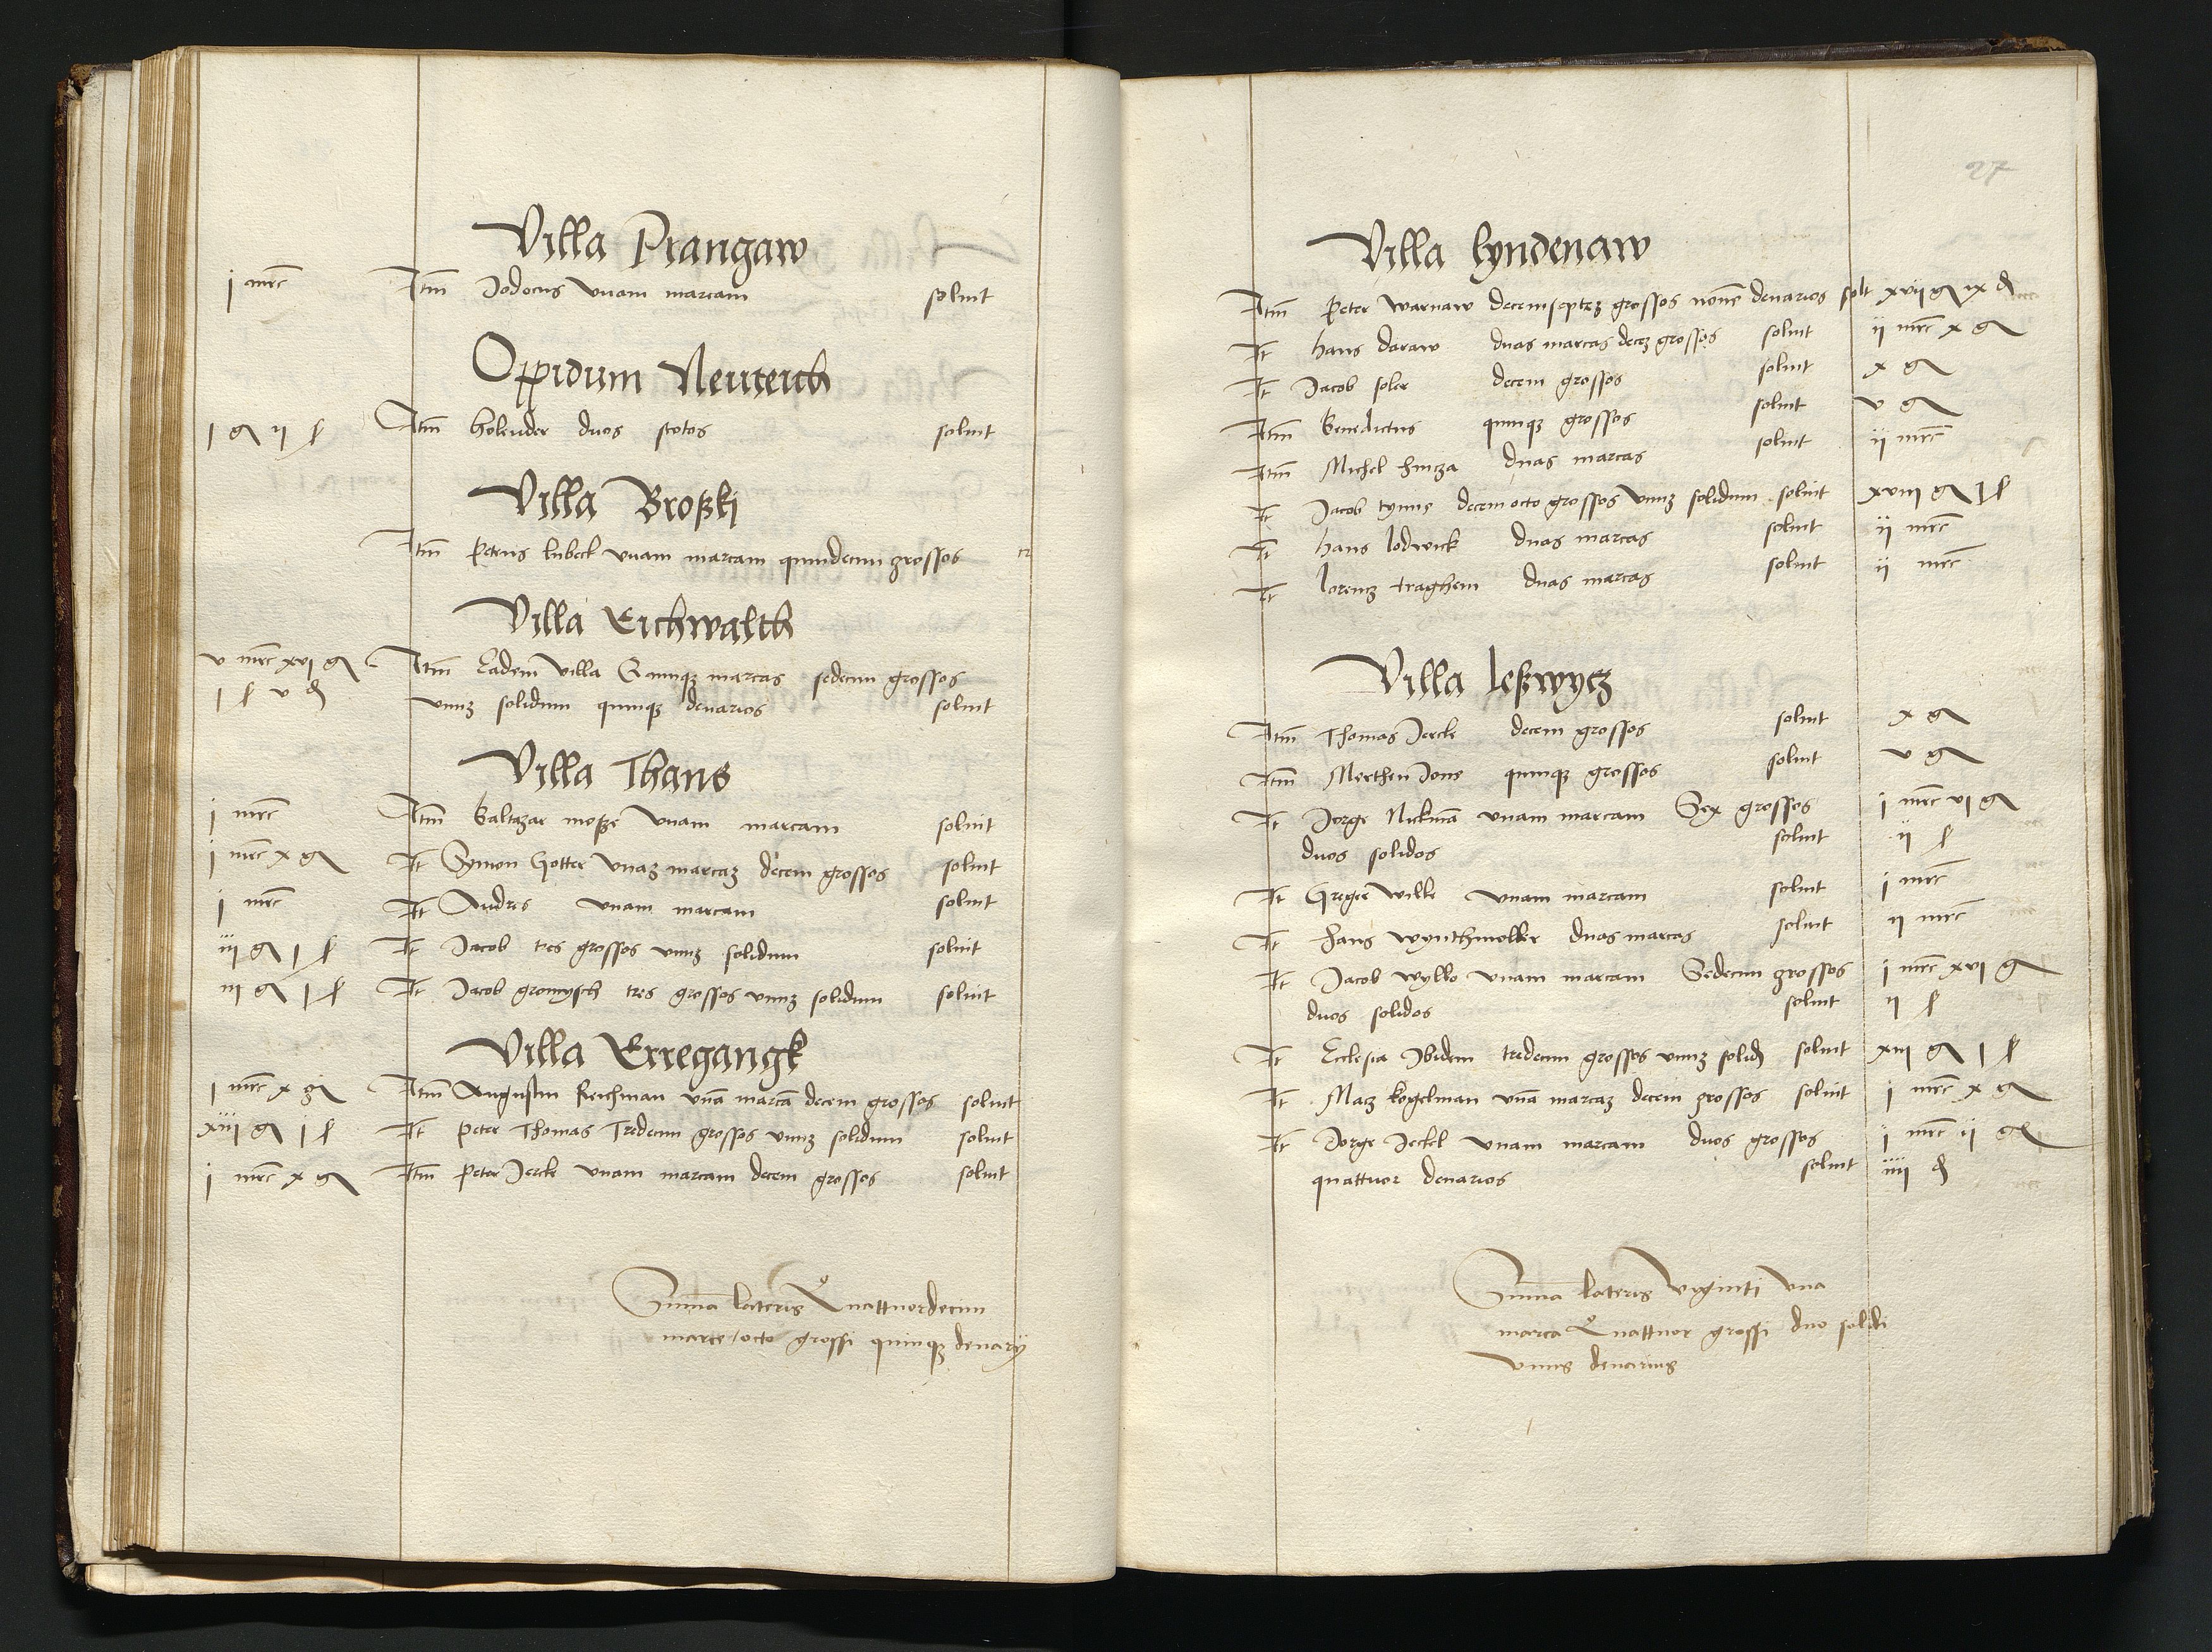 Villa Prangaw
j mrc Itm Jodocus vnam marcam soluit
Oppidum Neuteich
j g ij ß Itm holender duos scotos soluit
Villa Broßkj
Itm Petrus lubeck vnam marcam quindecim grossos
Villa Eichwalth
v mrc xvj g Itm Eadem villa Quinqz marcas sedecim grossos
j ß v d vnuz solidum quinqz denarios soluit
Villa Thans
j mrc Itm Baltazar moße vnam marcam soluit
j mrc x g It Symon Gotter vnaz marcaz decem grossos soluit
j mrc It Andres vnam marcam soluit
iij g j ß It Jacob tres grossos vnuz solidum soluit
iij g j ß It Jacob gromysch tres grossos vnuz solidum soluit
Villa Erregangk
j mrc x g Itm Augustin Reichman vnā marcā decem grossos soluit
xiij g j ß It Peter Thomas Tredecim grossos vnuz solidum soluit
j mrc x g Itm Peter Jerck vnam marcam decem grossos soluit
Summa lateris Quattuordecim
marce octo grossi quinqz denarij
27
Villa lyndenaw
Itm Peter Warnaw decemseptez grossos nouē denarios solt xvij g ix d
It Hans daraw duas marcas decez grossos soluit ij mrc x g
It Jacob soler decem grossos soluit x g
Itm Benedictus quinqz grossos soluit v g
Itm Michel hincza duas marcas soluit ij mrc
It Jacob tyms decem octo grossos vnuz solidum soluit xviij g j ß
It Hans lodwick duas marcas soluit ij mrc
It lorencz traghem duas marcas soluit ij mrc
Villa leßwycz
Itm Thomas Jercke decem grossos soluit x g
Itm Merthen Jone quinqz grossos soluit v g
It Jorge Nickmā vnam marcam Sex grossos j mrc vj g
duos solidos soluit ij ß
It Greger Wilke vnam marcam soluit j mrc
It Hans wynthmoller duas marcas soluit ij mrc
It Jacob wylko vnam marcam Sedecim grossos j mrc xvj g
duos solidos soluit ij ß
It Ecclesia Ibidem tredecim grossos vnuz solid soluit xiij g j ß
It Macz kogelman vnā marcaz decem grossos soluit j mrc x g
It Jorge Jeckel vnam marcam duos grossos j mrc ij g
quattuor denarios soluit iiij d
Summa lateris viginti vna
marca Quattuor grossi duo solidi
vnus denarius